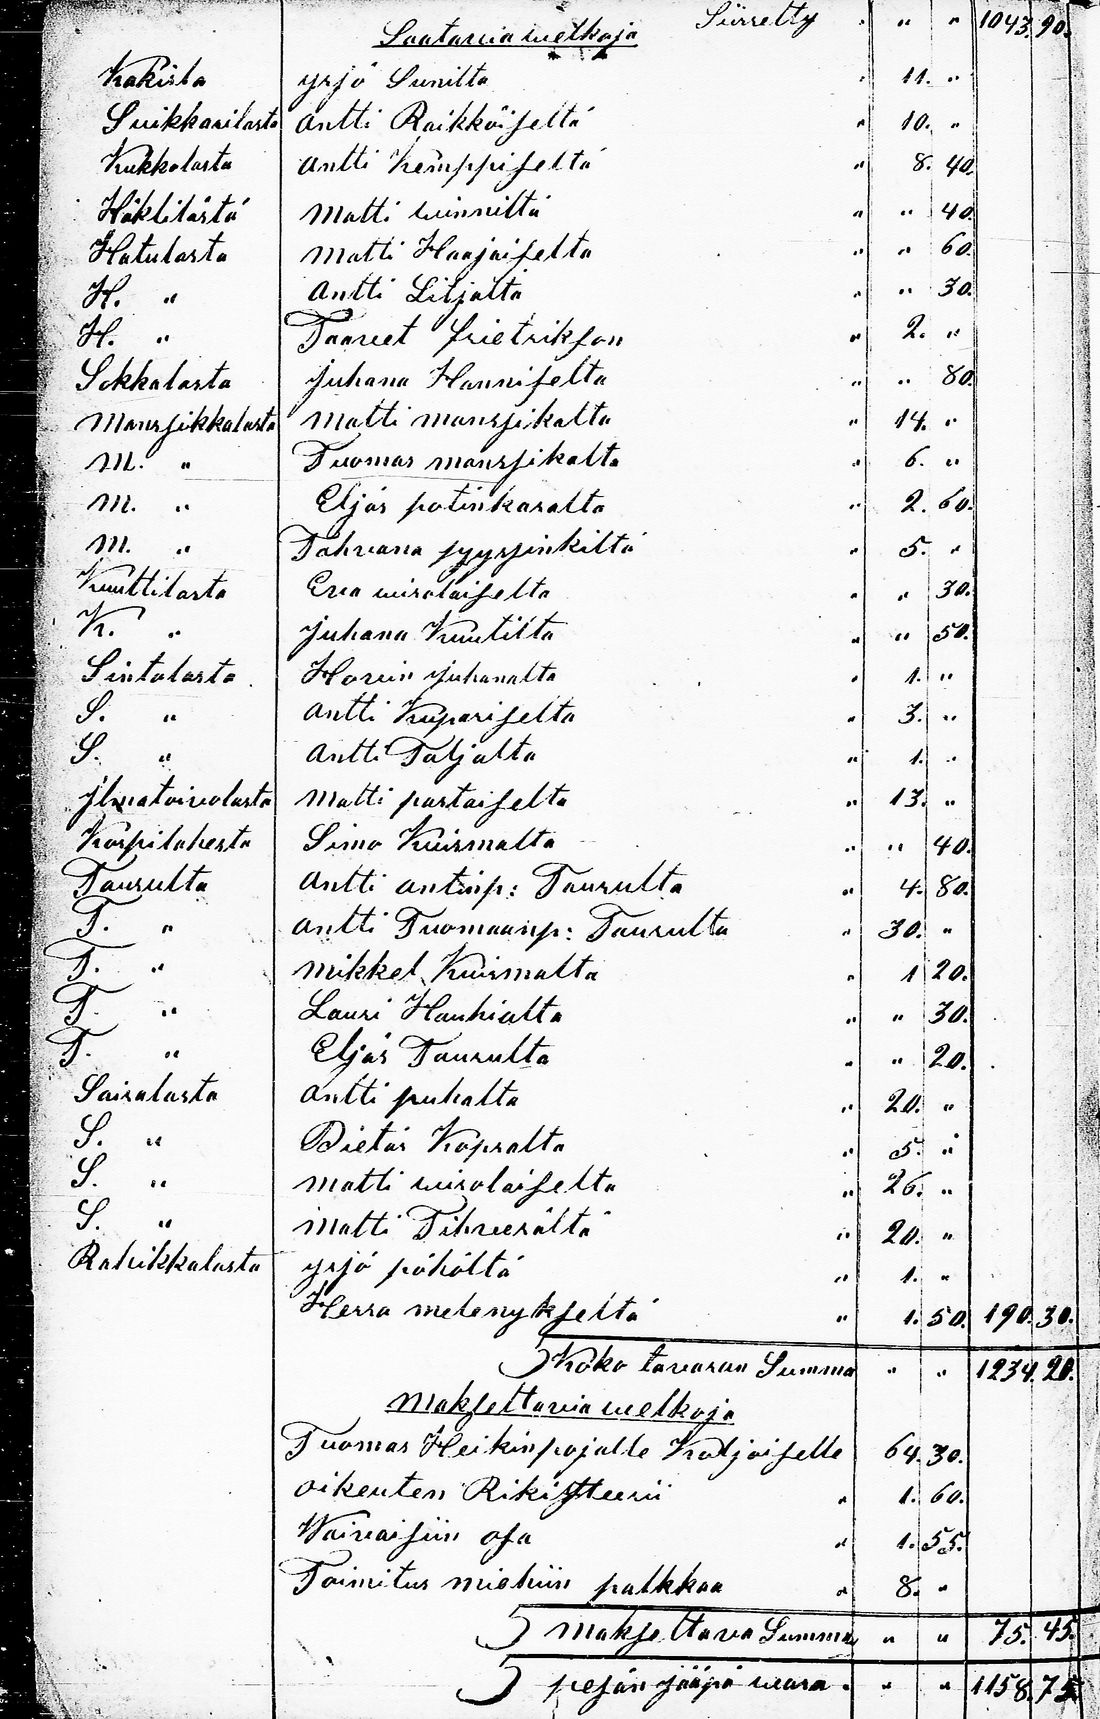 Siirretty " " " 1043.90.
Saatavia welkoja
Kakista yrjö Sunilta " 11. "
Suikkarilasta antti Raikköiseltä " 10. "
Kukkolasta antti Kemppiseltä " 8. 40.
Häklilästä matti winniltä " " 40.
Hatulasta matti Haajaiselta " " 60.
H. " antti Liljalta " " 30.
H. " Taavet frietrikson " 2. "
Sokkalasta juhana Hanniselta " " 80.
mansjikkalasta matti mansjikalta " 14. "
m. " Tuomas mansjikalta " 6. "
m. " Eljas potinkaralta " 2. 60.
m. " Tahvana pyysinkiltä " 5. "
Kuuttilasta Eva wirolaiselta " " 30.
K. " juhana Kuutilta " " 50.
Sintolasta Horvin juhanalta " 1. "
S. " antti Kupariselta " 3. "
S. " antti Taljalta " 1. "
jlmatoivolasta matti partaiselta " 13. "
Korpilahesta Simo Kuismalta " " 40.
Taurulta antti antinp: Taurulta " 4. 80.
T. " antti Tuomaanp: Taurulta " 30. "
T. " mikkel Kuismalta " 1 20.
T. " Lauri Hauhialta " " 30.
T. " Eljas Taurulta " " 20.
Sairalasta antti puhalta " 20. "
S. " Pietar Kopralta " 5. "
S. " matti wirolaiselta " 26. "
S. " matti Tihverältä " 20. "
Rahikkalasta yrjö pöhöltä " 1. "
Herra melenykseltä " 1. 50. 190.30.
Koko tavaran Summa " " 1234.20.
maksettavia welkoja
Tuomas Heikinpojalle Katjaiselle 64.30.
oikeuten Rikisteerii " 1. 60.
Waivaisiin osa " 1. 55.
Toimitus miehiin palkkaa " 8. "
maksettava Summa " " 75.45.
pesän jääpä wara " " " 1158.75.